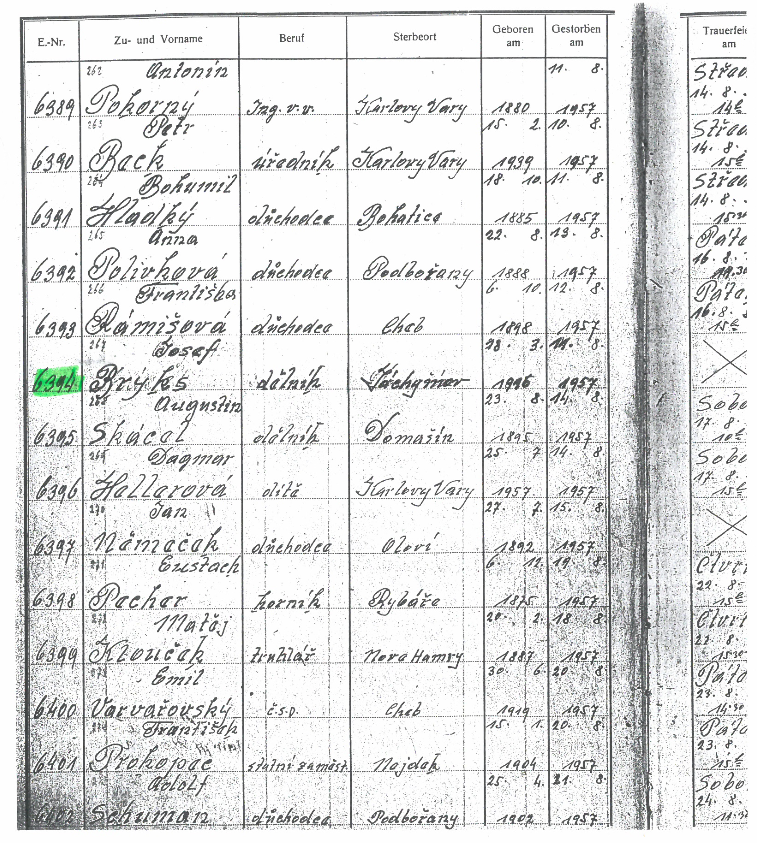 E.-Nr. Zu- und Vorname Beruf Sterbeort Geboren am Gestorben am Trauerfeie am
262 Antonín 11. 8. Střed
14. 8.
6389 Pohorný Ing. v.v. Karlovy Vary 1880 1957 14
263 Petr 15. 2. 10. 8. Střed
14. 8.
6390 Back úředník Karlovy Vary 1939 1957 15
264 Bohumil 18. 10. 11. 8. Střed
14. 8.
6391 Hladký důchodce Bohatice 1885 1957 15.30
265 Anna 22. 8. 13. 8. Páte
16. 8.
6392 Polívková důchodce Podbořany 1888 1957
266 Františka 6. 10. 12. 8. Páte
16. 8.
6393 Rámišová důchodce Cheb 1898 1957 15
Josef 28. 3. 8.
6394 Brykš dělník Jáchymov 1957
Augustin 23. 8. 14. 8. Sobo
17. 8.
6395 Skácel dělník Domašín 1895 1957 10
Dagmar 25. 7 14. 8. Sobo
17. 8.
6396 Hellarová dítě Karlovy Vary 1957 1957 15
270 Jan 27. 7. 15. 8.
6397 Námačak důchodce Oloví 1892 1957
271 Eustach 6. 12. 19 8. Čtvrt
22. 8.
6398 Pachar horník Rybáře 1875 1957 15
272 Matěj 20. 2. 18 8. Čtvrt
22 8.
6399 Kloučak truhlář Nova Hamry 1887 1957 15.30
273 Emil 30. 6. 20 8. Páta
23. 8.
6400 Varvařovský Č.S.D. Cheb 1919 1957 14.30
František 15. 1. 20. 8. Páte
23. 8.
6401 Prokopec statní zaměst. Nejdek 1904 1957 15
Adolf 25. 4. 21. 8. Sobo
24. 8.
6402 Schuman důchodce Podbořany 1902 1957